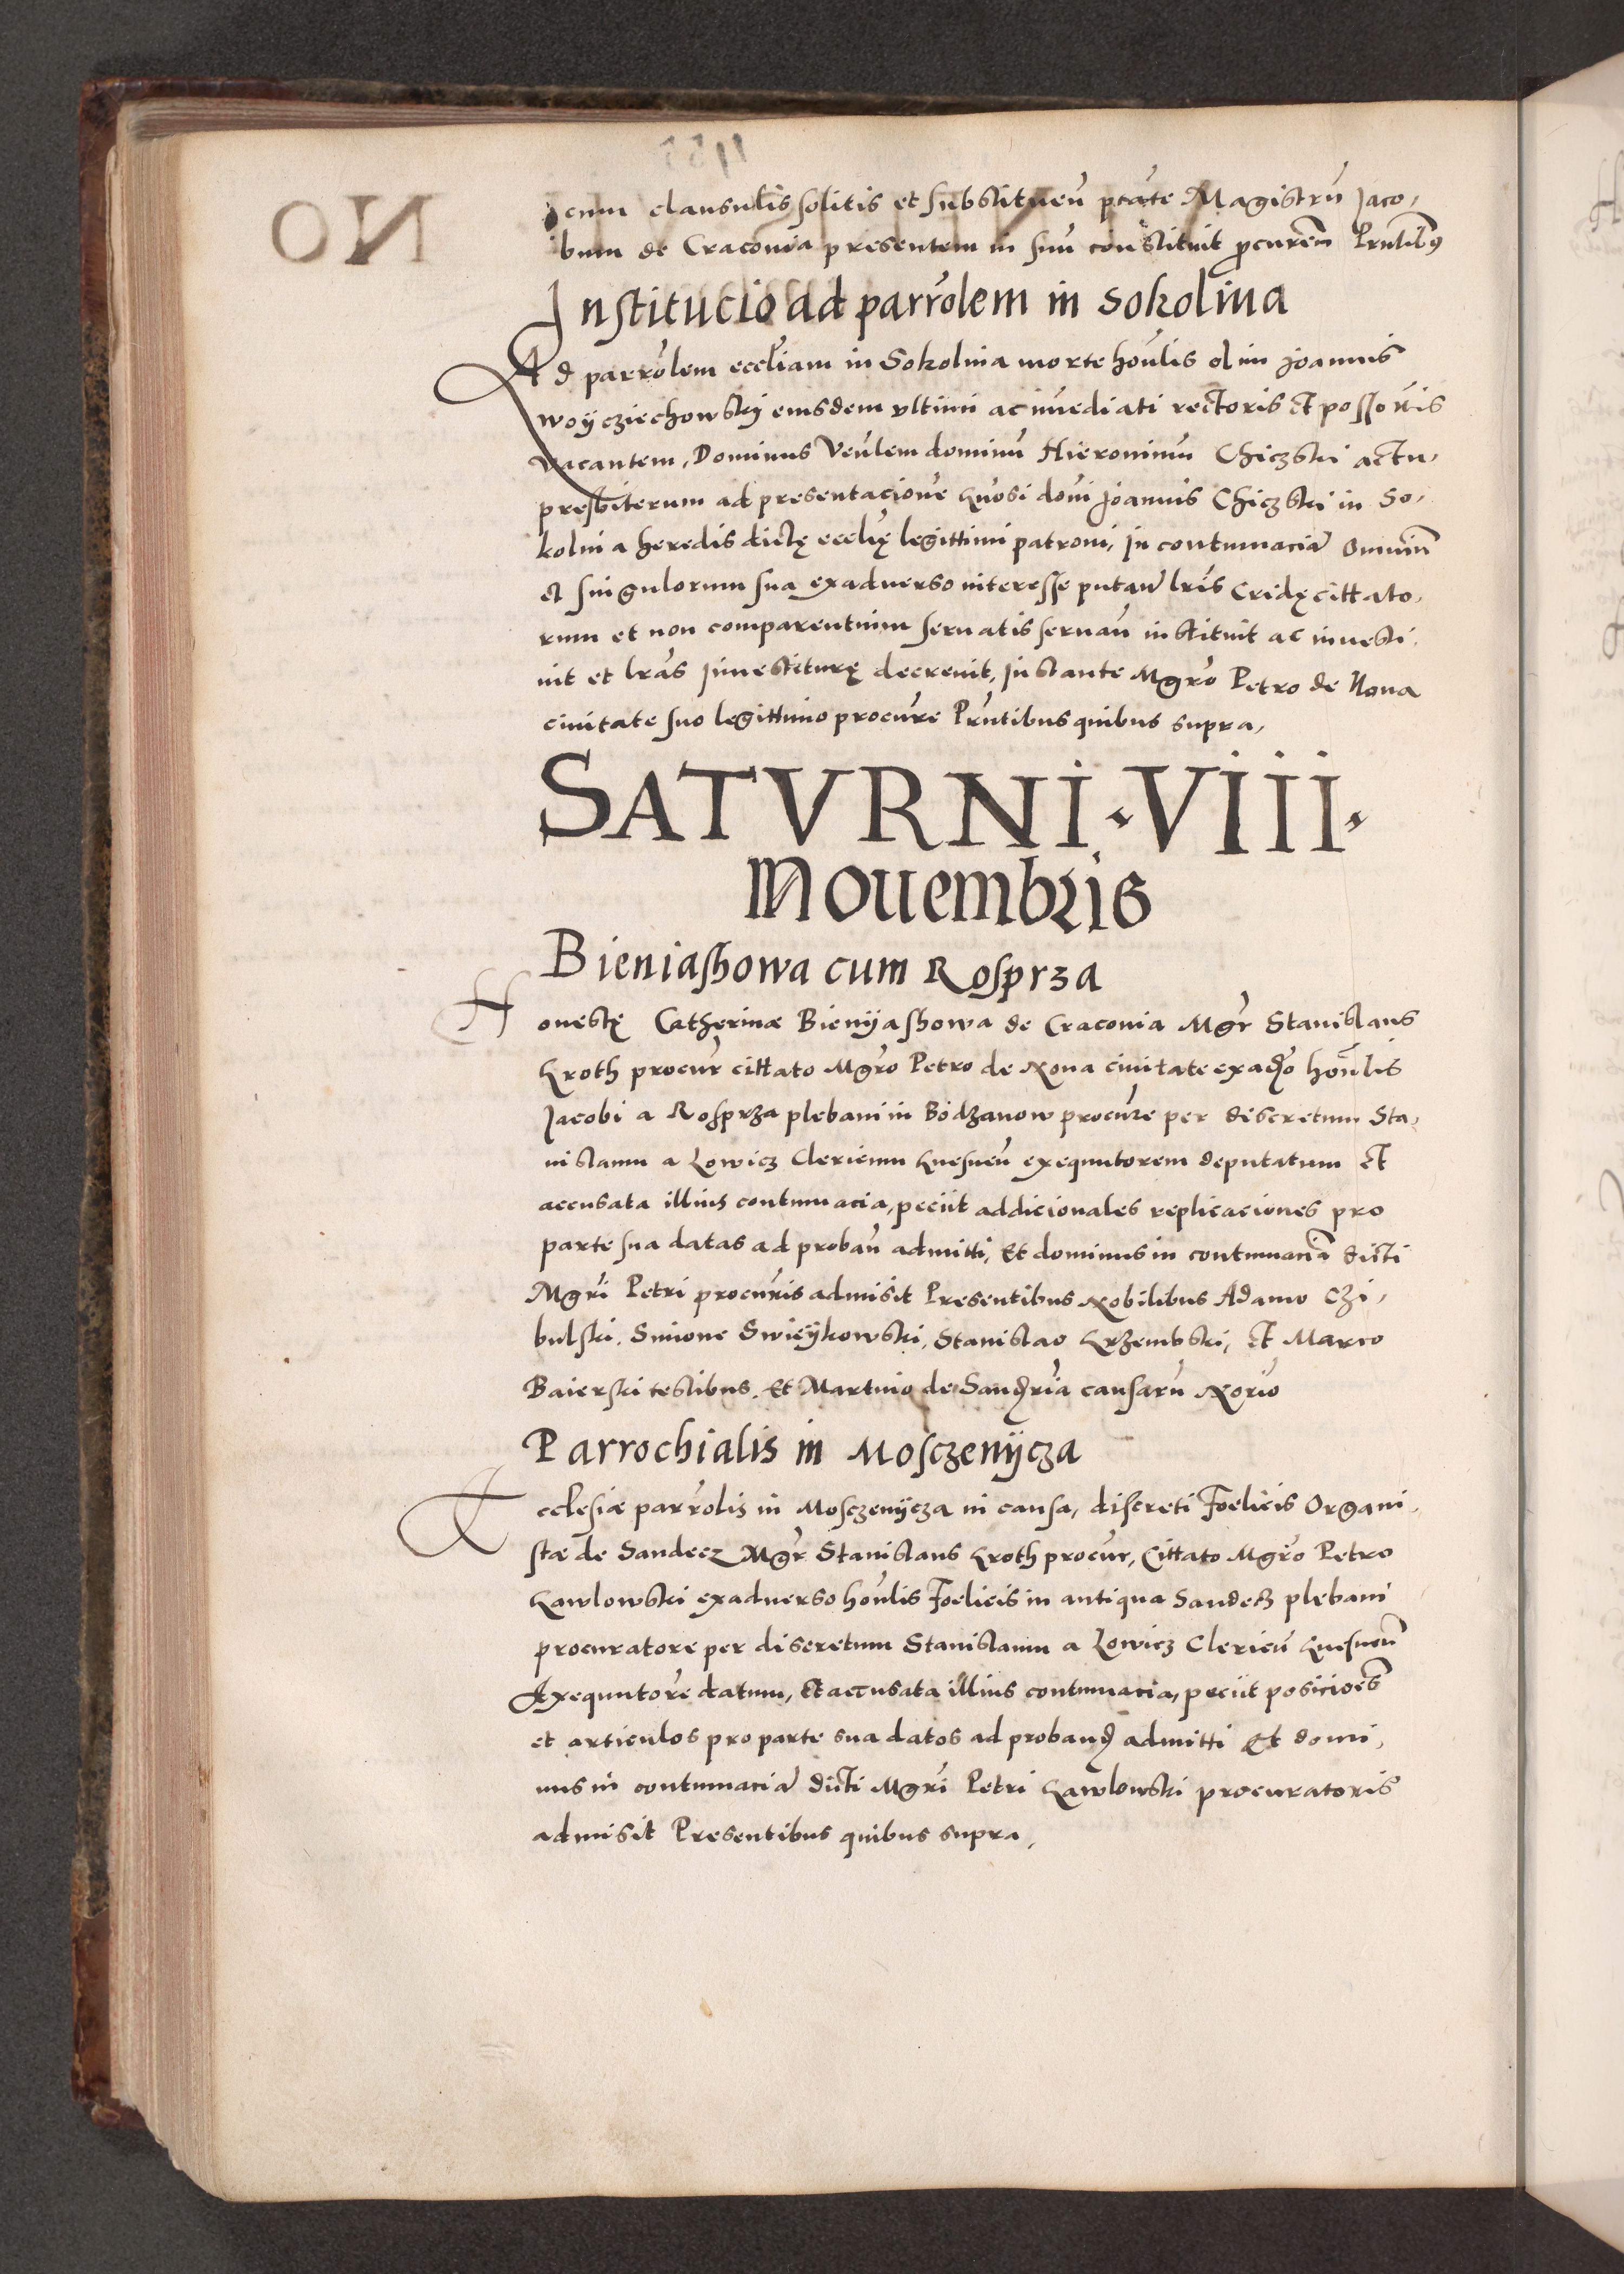 cum clausulis solitis et substitueñ ptate Magistrũ Jaco,
bum de Craconia presentem in suũ constituit pcurem̃ Pñtibus
Institucio ad parrolem in Sokolina
Ad parrolem eccliam in Sokolina morte honlis olim Joannis
Woijcziechowskij eiusdem vltimi ac imediati rectoris et possoris
vacantem, Dominus Venlem dominũ Hieronimũ Chiczski actu,
presbiterum ad presentacione gnosi doni Joannis Chiczski in So,
kolina heredis dictę ecclię legittimi patroni, in contumaciã Omniũ
et singulorum sua exaduerso interesse putañ lris Cridę cittato,
rum et non comparentium seruatis seruañ instituit ac inuesti,
uit et lras Jnuestiturę decreuit, Jnstante Mgro Petro de Noua
ciuitate suo legittimo procure Pñtibus quibus supra,
SATVRNI · VIII ·
Nouembris
Bieniashowa cum Rosprza
Honestę Catherinæ Bienijashowa de Craconia Mgr Stanislaus
Kroth procur cittato Mgro Petro de Noua ciuitate exadso honlis
Jacobi a Rosprza plebani in Bodzanow procure per discretum Sta,
nislaum a Lowicz Clericum Gnesneñ exequutorem deputatum et
accusata illius contumacia, peciit addicionales replicaciones pro
parte sua datas ad probañ admitti, Et dominus in contumaciã dicti
Mgri Petri procuris admisit Presentibus Nobilibus Adamo Czi,
bulski. Simone Swieijkowski, Stanislao Krzembski, et Marco
Baierski testibus. Et Martino de Sandria causarũ Norio
Parrochialis in Mosczenijcza
Ecclesiæ parrolis in Mosczenijcza in causa, discreti Foelicis Organi,
stæ de Sandecz Mgr Stanislaus Kroth procur, Cittato Mgro Petro
Kawlowski exaduerso honlis Foelicis in antiqua Sandecz plebani
procuratore per discretum Stanislaum a Lowicz Clericũ Gnesneñ
Exequutore datum, et accusata illius contumacia, peciit posicioes
et articulos pro parte sua datos ad proband admitti Et domi,
nus in contumaciã dicti Mgri Petri Kawlowski procuratoris
admisit Presentibus quibus supra,